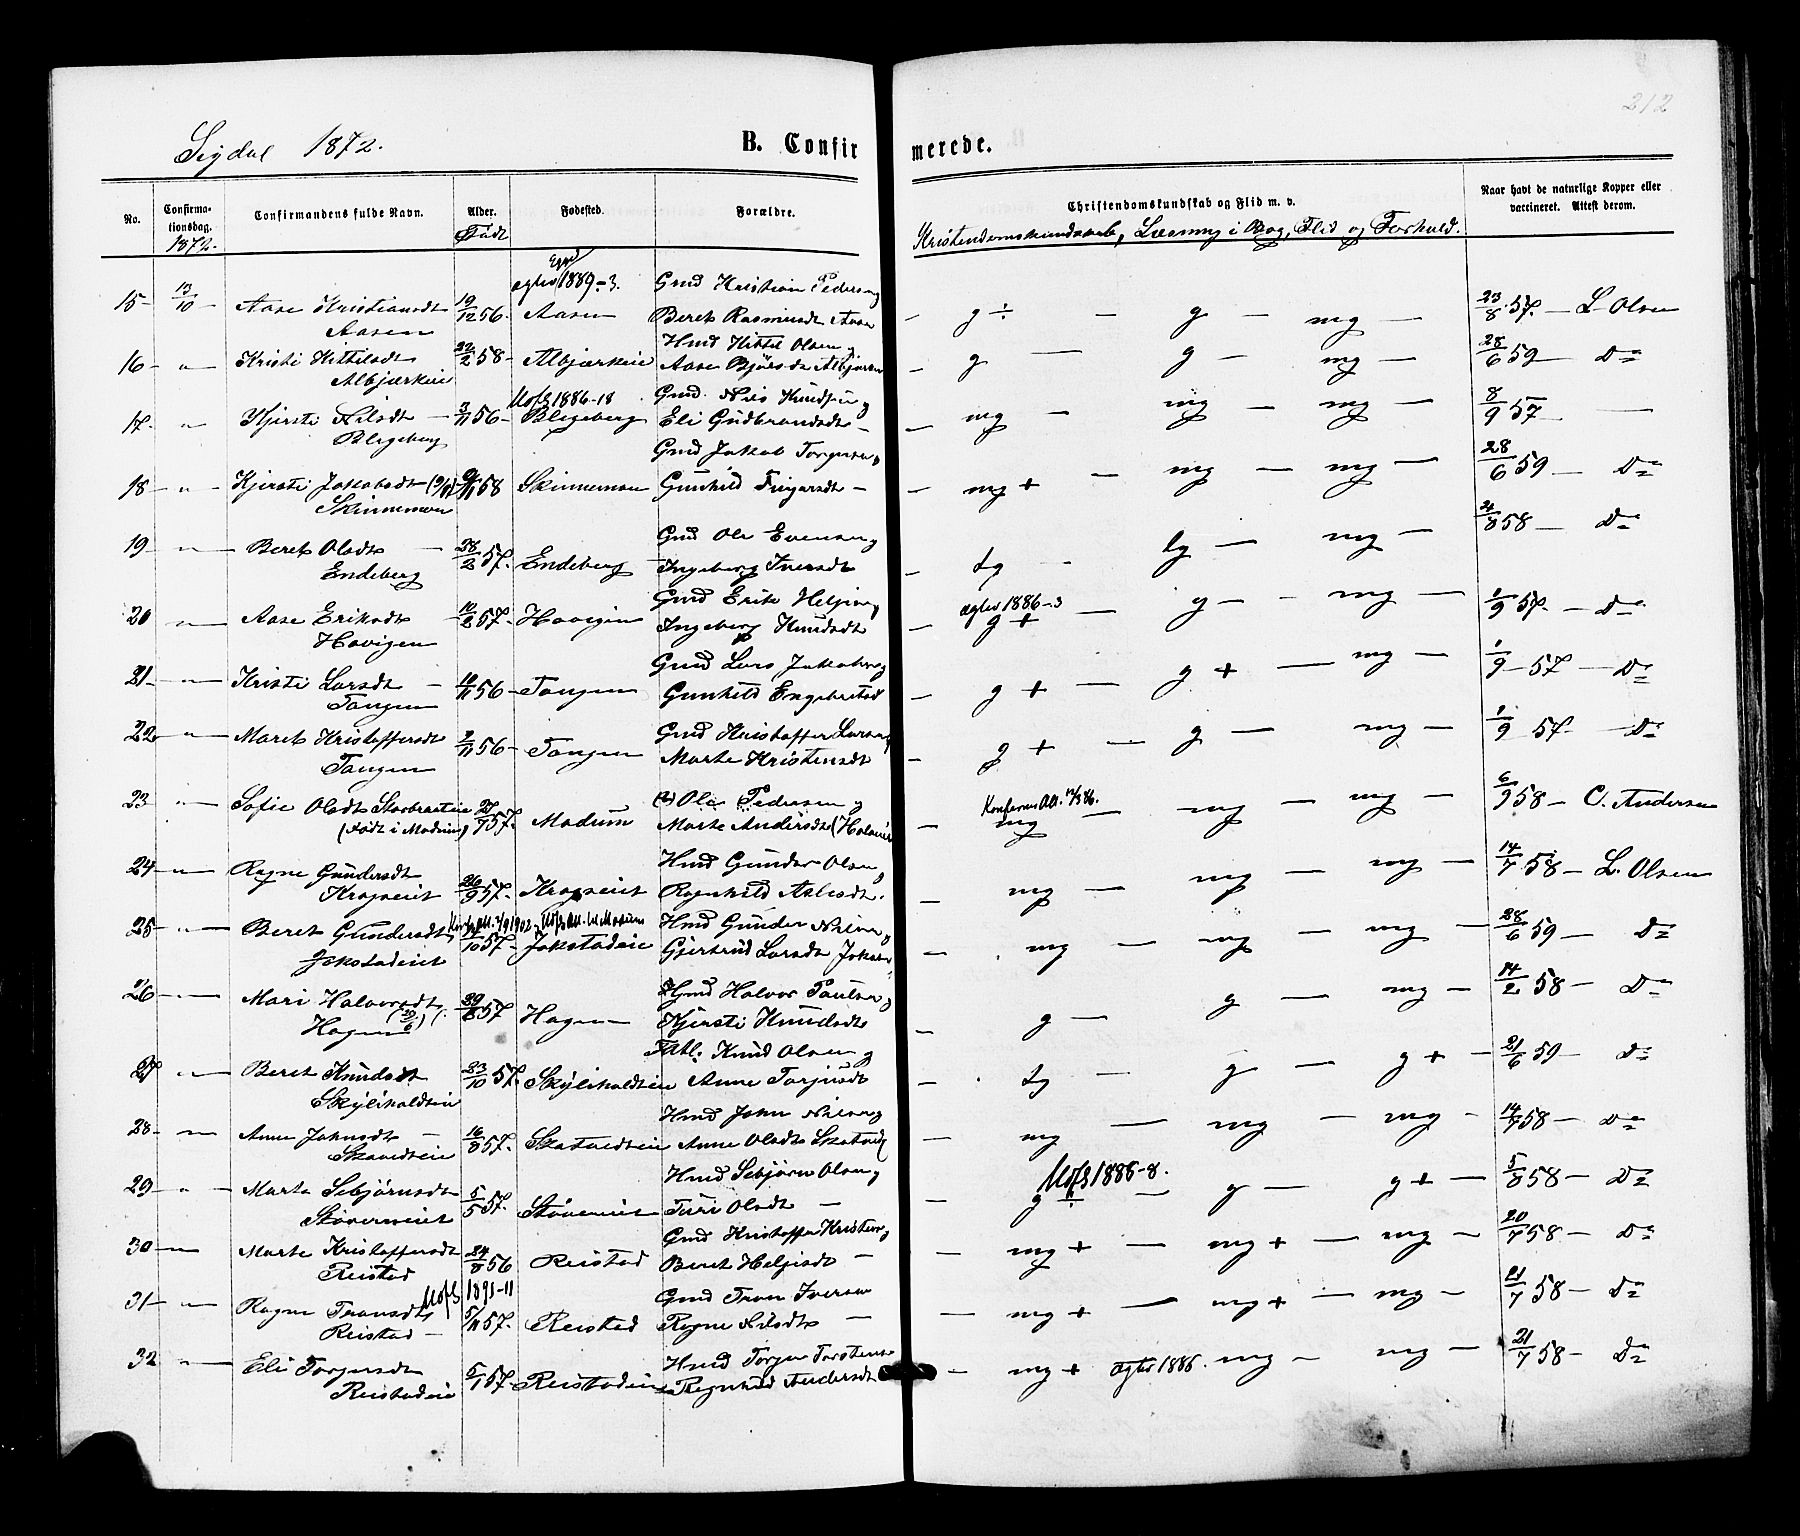 212
Sigdal 1872.
B. Confirmerede.
No.
Confirmationsdag.
1872.
Confirmandens fulde Navn.
Alder.
Født
Fødested.
Forældre.
Christendomskundskab og Flid m. v.
Kristendomskundskab, Læsning i Bog, Flid og Forhold.
Naar havt de naturlige Kopper eller vaccineret. Attest derom.
Eggd
ægtev 1889-3. Gmd Kristian Pedersen og
15- 13/10 - Aase Kristiansdt 19/12 56. Aasen Beret Rasmusdt Aasen - g ÷ - g - mg - 23/8 57. - L. Olsen
Aasen
Hmd Kittil Olsen og
16- " - Kristi Kittilsdt 22/2 58- Albjærkeie Aase Bjørnsdt Albjærkeie - g - g - mg - 28/6 59 - Do
Albjærkeie
Uofs 1886-18 Gmd. Nils Knudsen og
17- " Kjersti Nilsdt - 3/11 56- Bligeberg Eli Gudbrandsdt - - mg - mg - mg - 8/9 57 -
Bligeberg
Gmd Jakob Torgersen og
18- " - Kjersti Jakobsdt (9/11) 9/11 58 Skinnemoen Gunhild Fingarsdt - - mg + - mg - mg - 28/6 59 - Do
Skinnemoen
Gmd Ole Evensen og
19- " - Beret Olsdt - 28/2 57. Endeberg Ingeberg Iversdt - tg - tg - mg - 21/8 58 - Do
Endeberg
Gmd Erik Helgesen og ægtev 1886-3
20 " - Aase Eriksdt - 10/2 57. Hovigen Ingeberg Knudsdt - g + - g - - mg - 1/9 57. - Do
Hovigen
Gmd Lars Jakobsen og
21- " - Kristi Larsdt - 10/11 56- Tangen Gunhild Engebretsd - g + - g + - mg - 1/9 - 57 - Do
Tangen
Gmd Kristoffer Larsen og
22- " - Maret Kristoffersdt 9/11 56- Tangen Marte Kristensdt - g + - g - mg - 1/9 57. - Do
Tangen
Ole Pedersen og Konf.
23 " - Sofie Olsdt 21/7 57. Modum Marte Andersdt - mg - mg - mg - 6/9 58 - C. Andersen
(Født i Modum)
Hmd Gunder Olsen og
24- " - Ragne Gundersdt 26/9 57. Kragseiet Ragnhild Aslesdt. - mg - mg - mg - 14/7 58 - L. Olsen
Kragseiet
Hmd Gunder Nilsen og
25- " - Beret Gundersdt 14/10 57- Jokstadeie Gjertrud Larsdt - mg - mg - mg - 28/6 59 - Do
Jokstadeiet
Gmd Halvor Paulsen og
26- " - Mari Halvorsdt 29/8 57 Hagen Kjersti Knudsdt - g - g - mg - 14/2 58 - Do
Hagen
Fatl. Knud Olsen og
27 " - Beret Knudsdt 23/10 57. Anne Torjusdt - tg - g - g + - 21/6 59 - Do
Hmd John Nilsen og
28- " - Anne Johnsdt - 16/8 57. Skatvedteie Anne Olsdt Skatved - mg - mg - mg - 14/7 58 - Do
Hmd Sebjørn Olsen og Uofs 1886-8.
29 " - Marte Sebjørnsdt 5/5 57. Støvereiet Turi Olsdt - - g ÷ - g - g + - 5/8 58 - Do
Støverneiet
Gmd Kristoffer Kristens. og
30 - " - Marte Kristoffersdt 24/8 56 Reistad Beret Helgesdt - - mg + - mg + - mg - 20/7 58 - Do
Reistad
Uofs 1891-11 Gmd Tron Iversen
31- " - Ragne Tronsdt 5/11 57. Reistad Ragne Nilsdt - - mg + - mg + - mg - 21/7 58 - Do
Reistad -
Hmd Torger Torstens.
32 " - Eli Torgersdt 5/1 57. Reistadeie Ragnhild Andersdt - mg + ægtev 1886. mg - mg - 21/7 58 - Do
Reistadeie